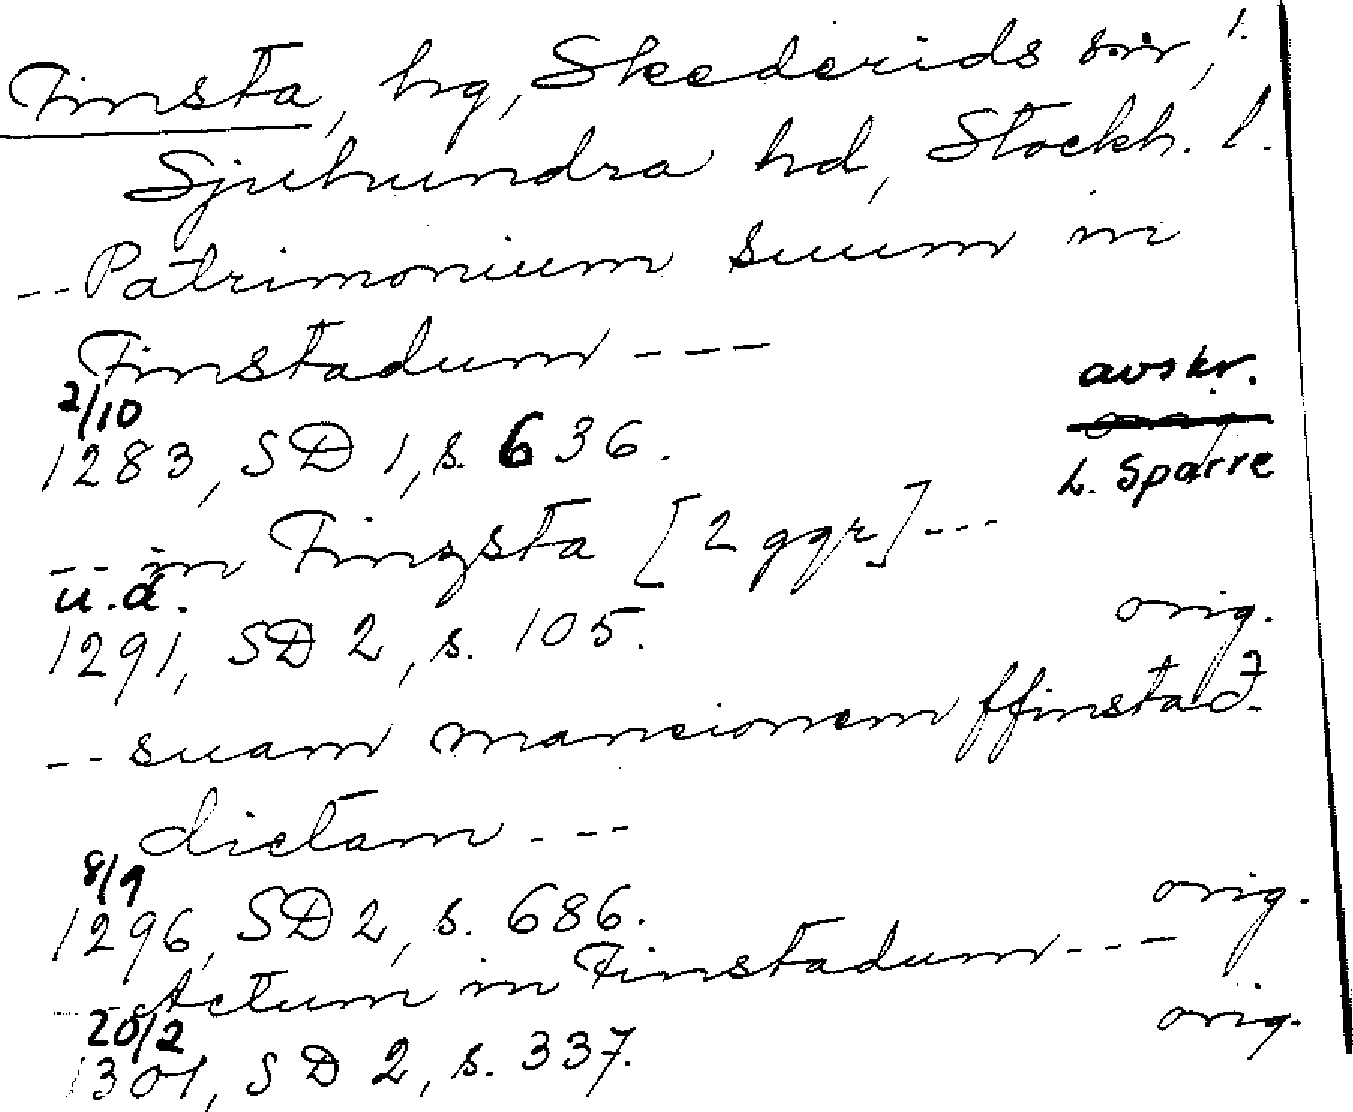 Finsta, hg, Skederids sn, 1.
Sjuhundra hd, Stockh. l.
-- Patrimonium suum in
Finstadum ---
avskr.
2/10
1283, SD 1, s. 636.
L. Sparre
-- in Finzsta [2 ggr] ---
u.d.
1291, SD 2, s. 105.
orig.
-- suam mancionem ffinstad
dictam ---
8/9
1296, SD 2, s. 686.
orig.
-- Actum in Finstadum ---
20/2
1301, SD 2, s. 337.
orig.